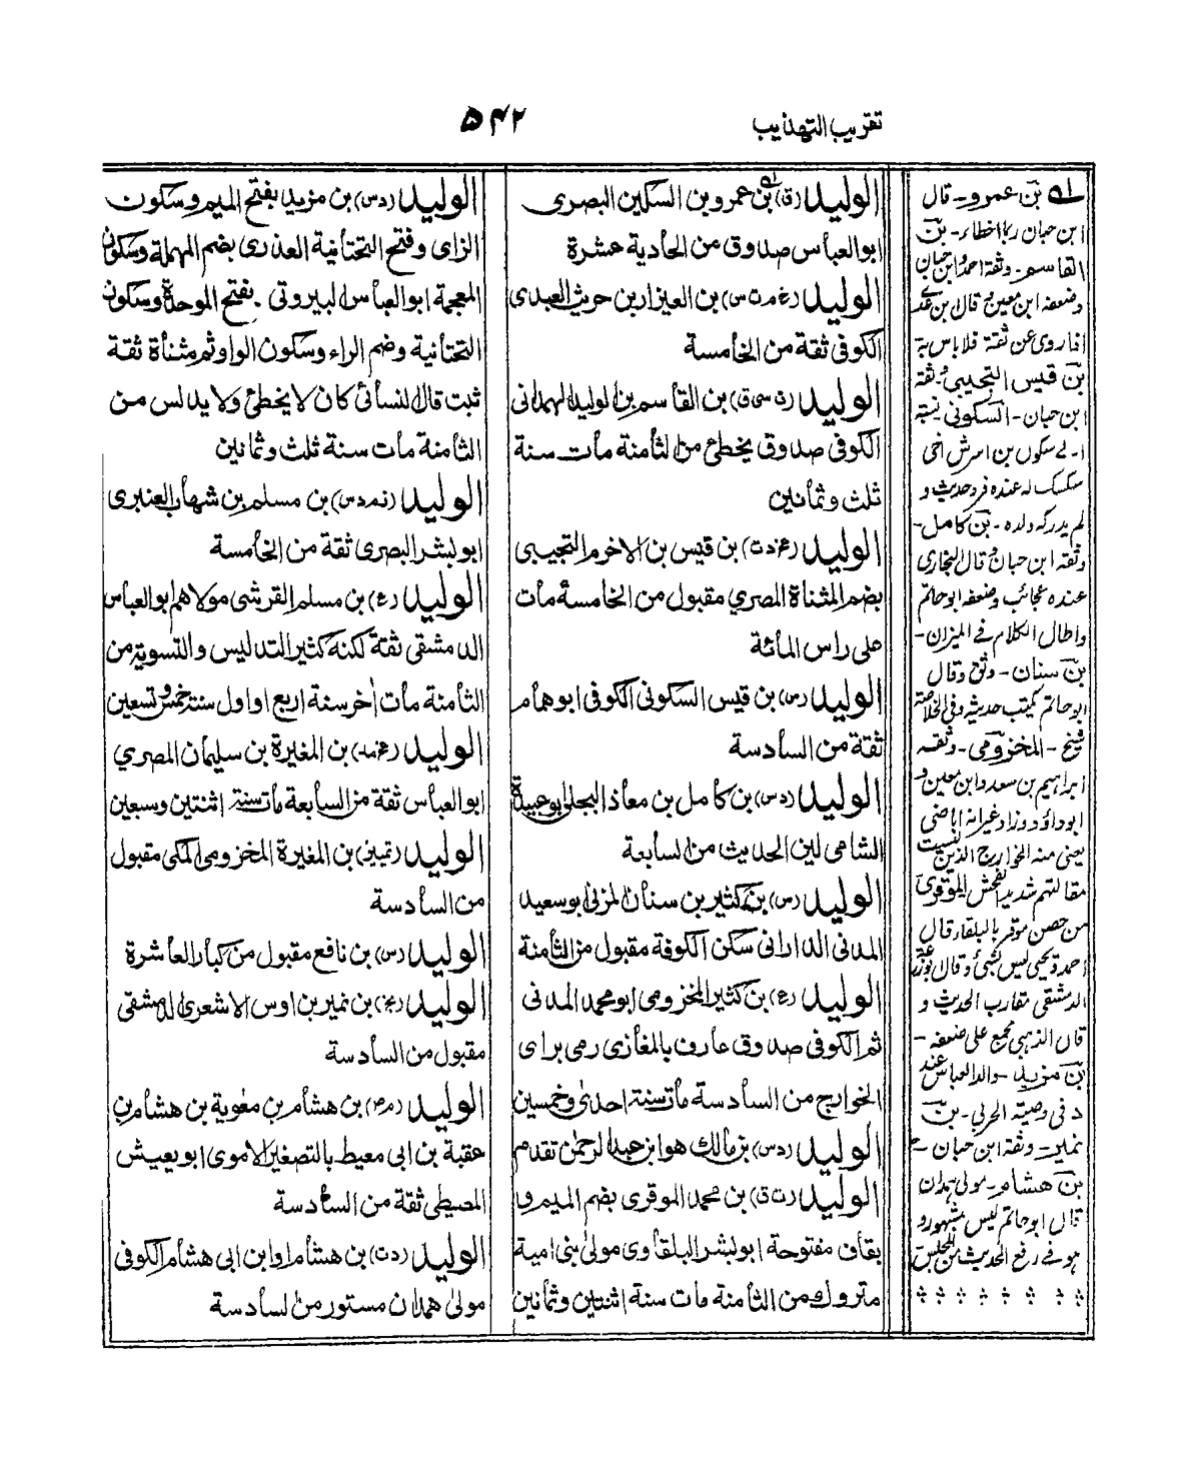 تقريب التهذيب
۵۴۲
الوليد (ق) بن عمرو بن السكين البصرى
ابوالعباس صدوق من الحادية عشرة
الوليد (عخ مرت س) بن العيزار بن حريث العبدى
الكوفى ثقة من الخامسة
الوليد (ت سى ق) بن القاسم بن الوليد الهمدانى
الكوفى صدوق يخطئ من الثامنة مات سنة
ثلث وثمانين
الوليد (عخ د ت) بن قيس بن الاخرم التجيبى
بضم المثناة المصري مقبول من الخامسة مات
على راس المائة
الوليد (س) بن قيس السكونى الكوفى ابو همام
ثقة من السادسة
الوليد (د س) بن كامل بن معاذ البجلى ابو عبيدة
الشامى لين الحديث من السابعة
الوليد (س) بن كثير بن سنان المزنى ابو سعيد
المدنى الدارانى سكن الكوفة مقبول من الثامنة
الوليد (ع) بن كثير المخزومى ابو محمد المدنى
ثم الكوفى صدوق عارف بالمغازى رمى براى
الخوارج من السادسة مات سنة احدى وخمسين
الوليد (د س) بن مالك هو ابن عبد الرحمن تقدم
الوليد (ت ق) بن محمد الموقرى بضم الميم و
بقاف مفتوحة ابو بشر البلقاوى مولى بنى امية
متروك من الثامنة مات سنة اثنتين وثمانين
الوليد (د س) بن مزيد بفتح الميم وسكون
الزاى وفتح التحتانية العذرى بضم المهملة وسكون
المعجمة ابوالعباس البيروتى بفتح الموحدة وسكون
التحتانية وضم الراء وسكون الواو ثم مثناة ثقة
ثبت قال النسائى كان لا يخطئ ولا يدلس من
الثامنة مات سنة ثلث وثمانين
الوليد (ز م د س) بن مسلم بن شهاب العنبرى
ابو بشر البصرى ثقة من الخامسة
الوليد (ع) بن مسلم القرشى مولاهم ابوالعباس
الدمشقى ثقة لكنه كثير التدليس والتسوية من
الثامنة مات اخر سنة اربع او اول سنة خمس وتسعين
الوليد بن المغيرة بن سليمان المصري
ابوالعباس ثقة من السابعة مات سنة اثنتين وسبعين
الوليد (تمييز) بن المغيرة المخزومى المكى مقبول
من السادسة
الوليد (س) بن نافع مقبول من كبار العاشرة
الوليد (بخ) بن نمير بن اوس الاشعرى الدمشقى
مقبول من السادسة
الوليد بن هشام بن معوية بن هشام بن
عقبة بن ابى معيط بالتصغير الاموى ابو يعيش
المعيطى ثقة من السادسة
الوليد (د ت) بن هشام او ابن ابى هشام الكوفى
مولى همدان مستور من السادسة
بن عمرو - قال
ابن حبان ربما اخطاء - بن
القاسم - وثقه احمد وابن حبان
وضعفه ابن معين وقال بن عدى
اذا روى عن ثقة فلا باس به
بن قيس التجيبى - ثقة
ابن حبان - السكونى نسبة
الى سكون بن اشرس اخى
سكسك له عنده فرد حديث و
لم يدركه ولده - بن كامل -
وثقه ابن حبان وقال البخارى
عنده عجائب وضعفه ابو حاتم
واطال الكلام فى الميزان -
بن سنان - وثق وقال
ابو حاتم يكتب حديثه وفى الخلاصة
شيخ - المخزومى - وثقه
ابراهيم بن سعد وابن معين و
ابو داؤد وزاد غير انه اباضى
يعنى منه الخوارج الذين ليست
مقالتهم شديدة الفحش الموقرى
من حصن موقر بالبلقاء قال
احمد ويحيى ليس بشئ وقال ابو زرعة
الدمشقى مقارب الحديث و
قال الذهبى مجمع على ضعفه -
بن مزيد - والد العباس عند
د فى وصية الحربى - بن
نمير - وثقه ابن حبان -
بن هشام - مولى همدان
قال ابو حاتم ليس بمشهور و
هو فى رفع الحديث من المجلس